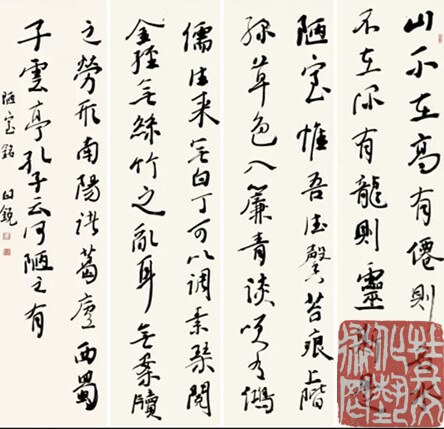 山不在高有僊則名水
不在深有龍則靈
陋室惟吾德馨苔痕上階
緑草色入簾青談笑有鴻
儒往来無白丁可以調素琴閱
金經無絲竹之亂耳無案牘
之勞形南陽諸葛廬西蜀
子雲亭孔子云何陋之有
陋室銘